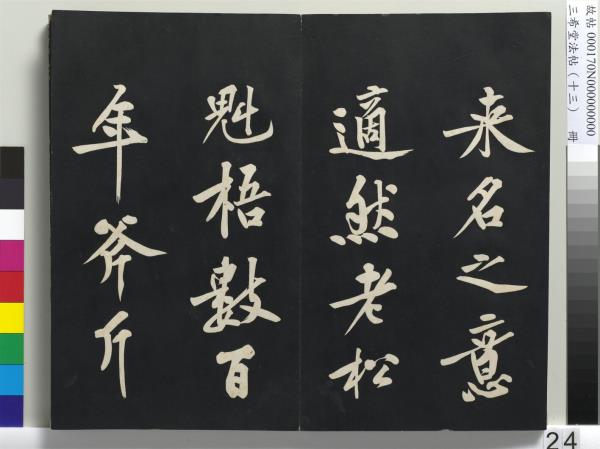 来名之意
適然老松
魁梧數百
年斧斤
故帖 000170N000000000
三希堂法帖（十三） 冊
24